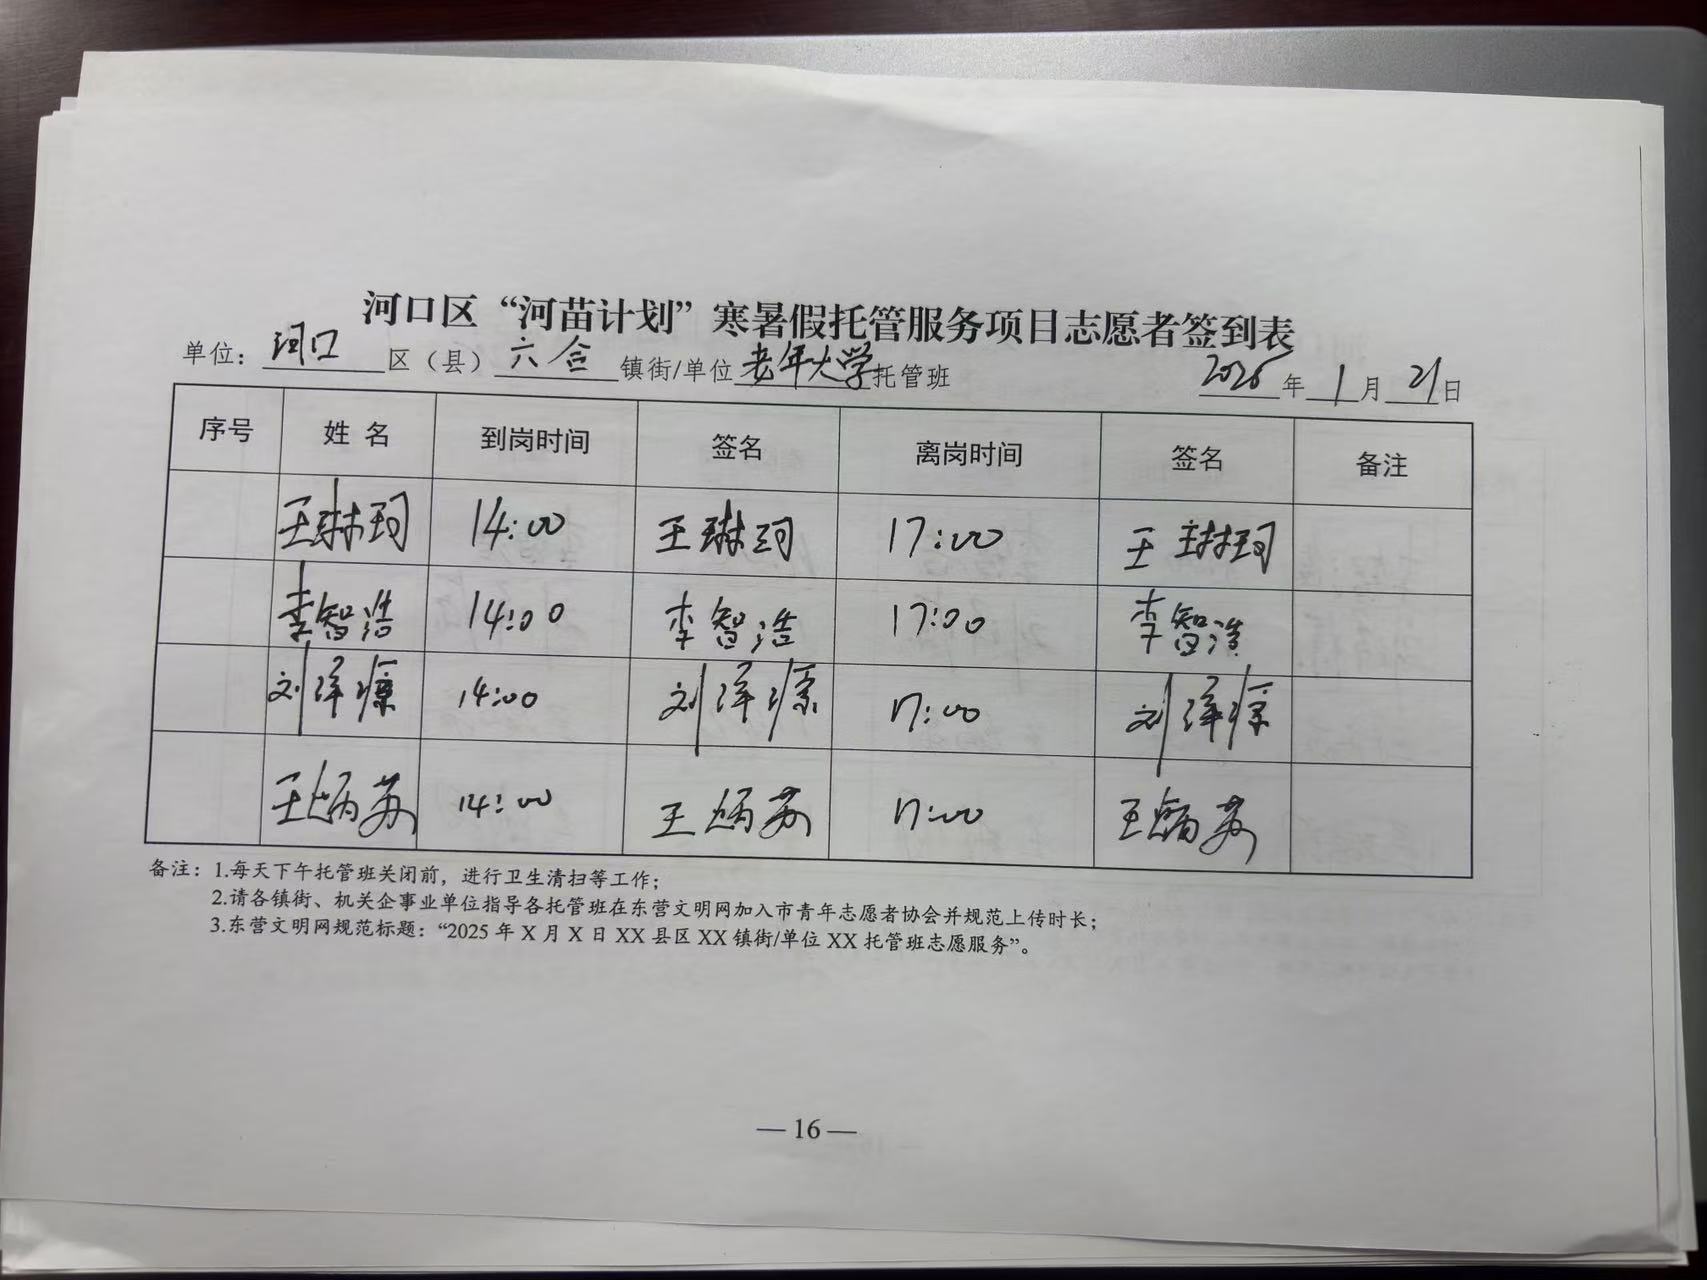 河口区“河苗计划”寒暑假托管服务项目志愿者签到表
单位：河口区（县）六合镇街/单位老年大学托管班 2026年1月21日
序号 姓名 到岗时间 签名 离岗时间 签名 备注
王琳珂 14:00 王琳珂 17:00 王琳珂
李智浩 14:00 李智浩 17:00 李智浩
刘洋 14:00 刘洋 17:00 刘洋
王炳苏 14:00 王炳苏 17:00 王炳苏
备注：1.每天下午托管班关闭前，进行卫生清扫等工作；
2.请各镇街、机关企事业单位指导各托管班在东营文明网加入市青年志愿者协会并规范上传时长；
3.东营文明网规范标题：“2025 年 X 月 X 日 XX 县区 XX 镇街/单位 XX 托管班志愿服务”。
— 16 —